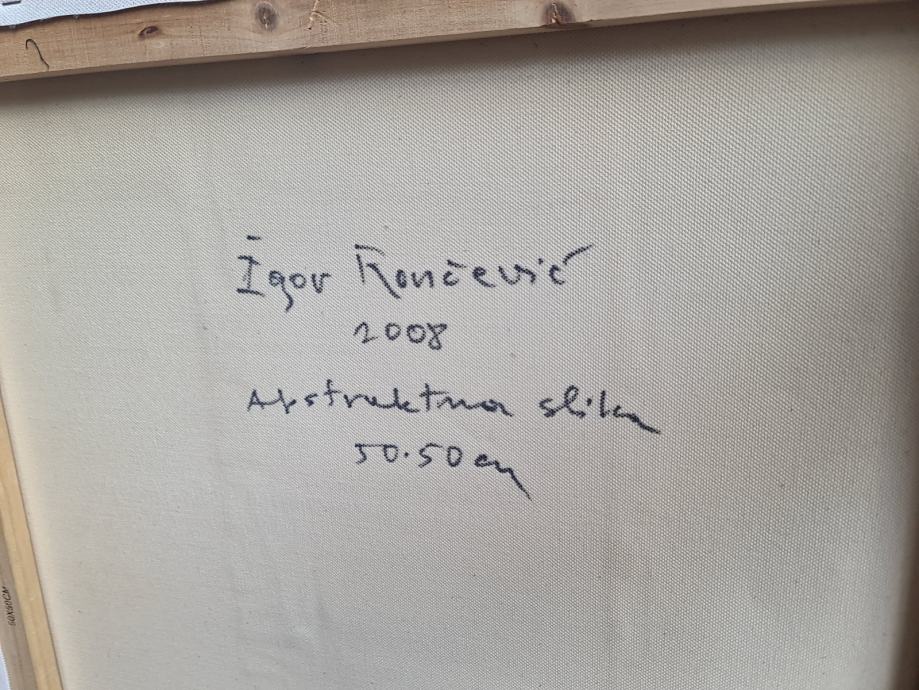 Igor Rončević
2008
Apstraktna slika
50.50 cm
50X50CM